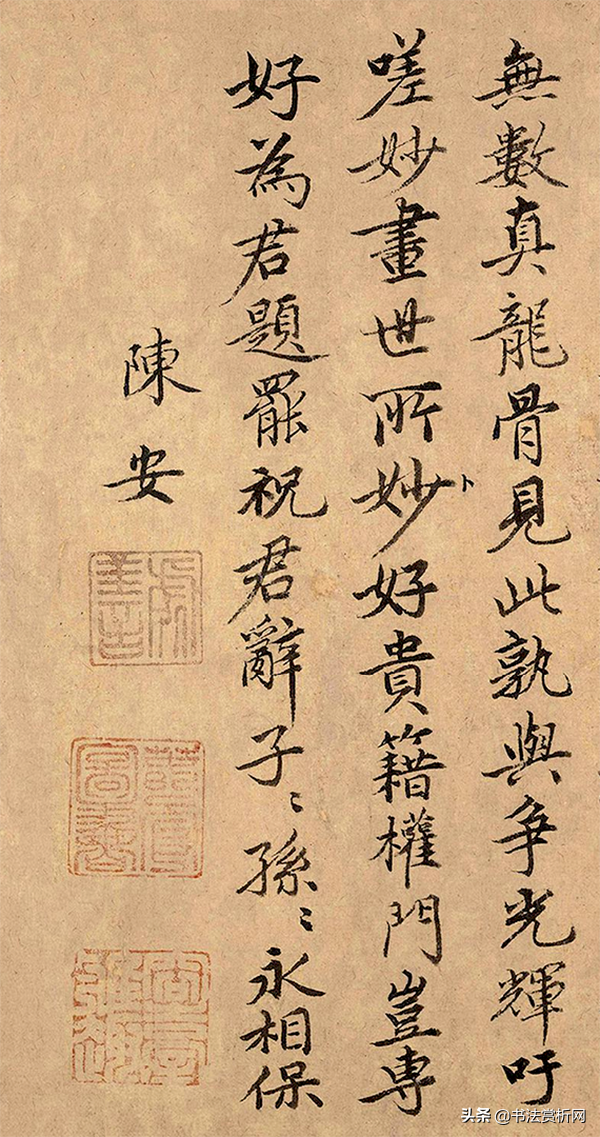 無數真龍骨見此孰與争光輝吁
嗟妙畫世所妙卜好貴籍權門豈専
好為君題罷祝君辭子〻孫〻永相保
陳安
头条 @书法赏析网